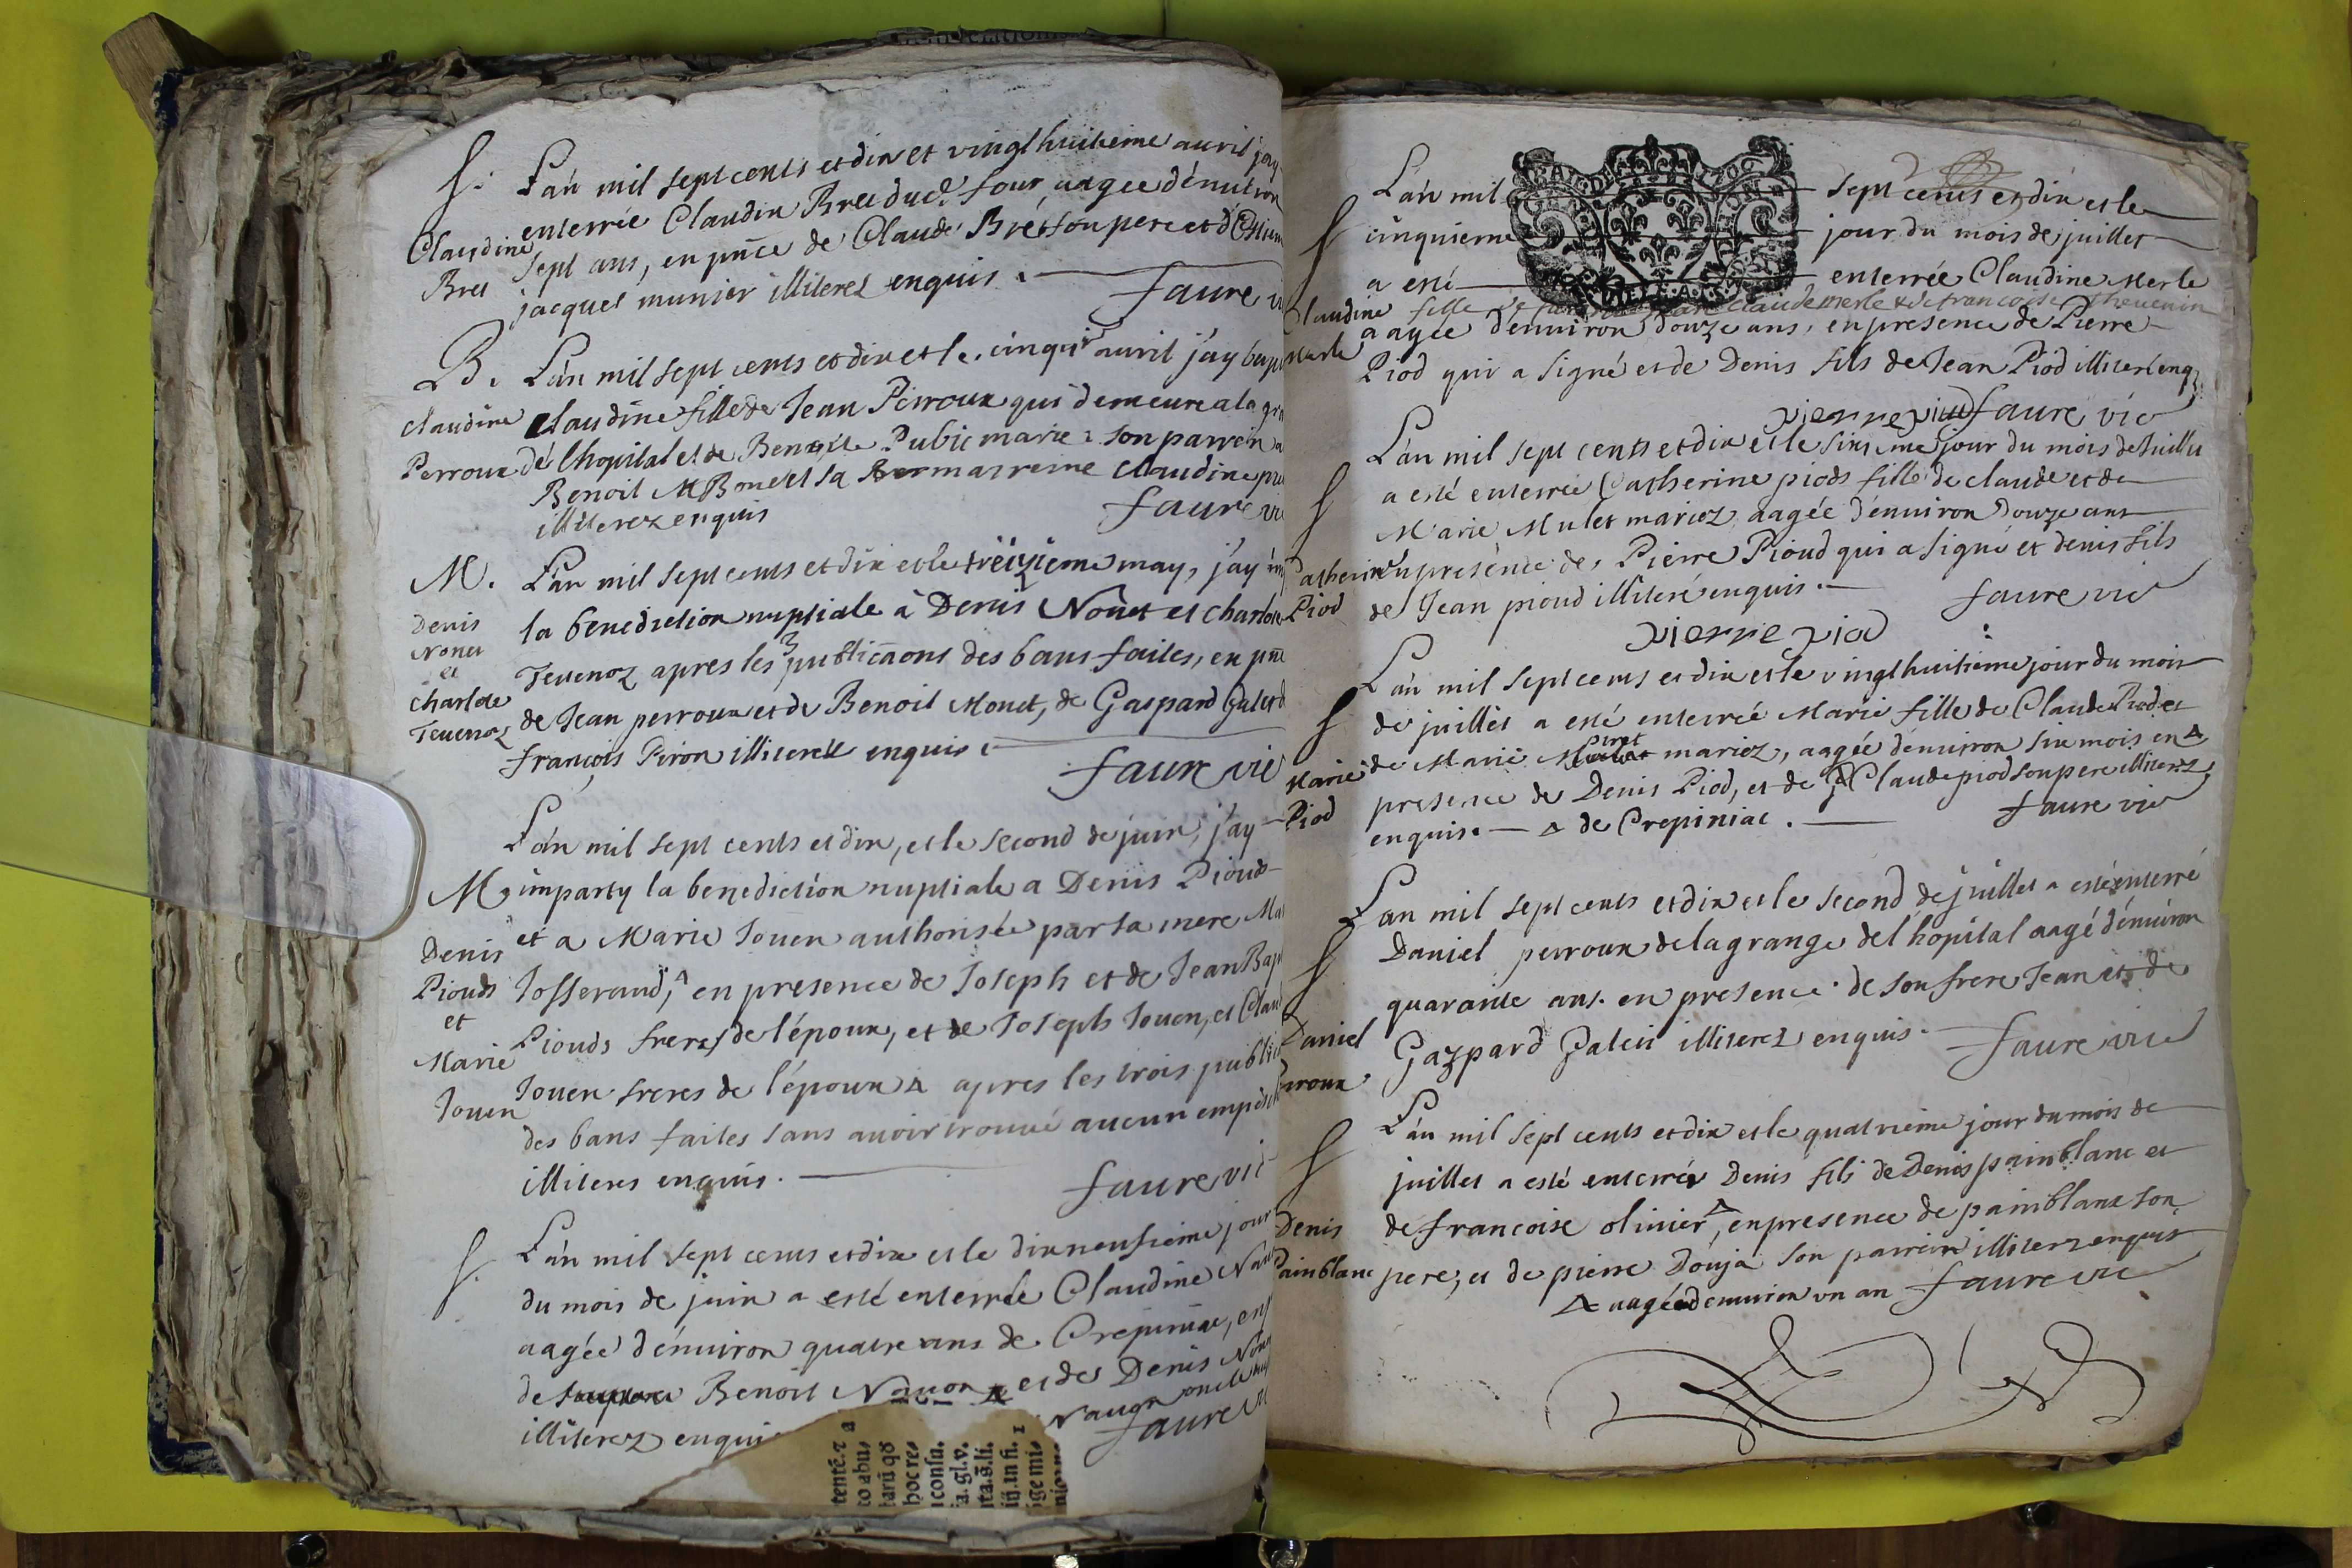 S. L'an mil sept cents et dix et vingt huitieme auril j'ay
enterrée Claudin Bret dud. four aagée dénuiron
Claudine
Bret
sept ans, en pnce de Claude Brét son pere et d'Estien
jacquet munier illiterez enquis.
faure vi
B. L'an mil sept cents et dix et le cinqe auril j'ay bapt
claudine
Perroux
Claudine fille de Jean Perroux qui demeure a la gra
de l'hopital et de Benoite Pubic mariez son parrein a
Benoit M Bonet et sa marreine Claudine
illiterez enquis
faure vic
M. L'an mil sept cents et dix et le tréizieme may, j'ay im
Denis
Nonet
et
Charlote
Teuenoz
la benediction nuptiale à Denis Nonet et Charlote
Teuenoz apres les 3 publicaons des bans faites, en pnce
de Jean perroux et de Benoit Monet, de Gaspard Galet d
françois Piron illiterez enquis.
faure vic
L'an mil sept cents et dix, et le second de juin, j'ay
M. imparty la benediction nuptiale a Denis Piouds
Denis
Piouds
et
Marie
Jouen
et a Marie Jouen authorisée par sa mere Ma
Josserand, en presence de Joseph et de Jean Bap
Piouds freres de l'époux, et de Joseph Jouen, et Claud
Jouen freres de l'époux ∆ apres les trois public
des bans faites sans auoir trouué aucun empech
illiteres enquis.
faure vic
S. L'an mil sept cents et dix et le dixneufieme jour
du mois de juin a esté enterrée Claudine Nau
aagée d'énuiron quatre ans de Crepiniac, en p
de Benoit Nauon ∆ et de Denis Nonet
illiterez enquis
faure vi
tente. z a
to abus
tarū qd
hoc res
i consu.
ia. gl. v.
ita. s. li.
iij. in fi. 1
ige mis
S L'an mil sept cents et dix et le
cinquieme jour du mois de juillet
a esté enterrée Claudine Merle
Claudine
Merle
fille de Claude merle & de francoise theuenin
aagée d'enuiron douze ans, en presence de Pierre
Piod qui a signé et de Denis fils de Jean Piod illiteré enq.
pierre piod faure vic
S L'an mil sept cents et dix et le sixieme jour du mois de Juillet
a esté enterrée Catherine piods fille de claude et de
Marie Mulet mariez, aagée d'énuiron douze ans
Catherine
Piod
en presence de, Pierre Pioud qui a signé et denis fils
de Jean pioud illiteré enquis.
faure vic
pierre piod
S L'an mil sept cents et dix et le vingt huitieme jour du mois
de juillet a esté enterrée Marie fille de Claude Piod et
Marie
Piod
de Marie Piret mariez, aagée d'énuiron six mois en ∆
presence de Denis Piod, et de Claude piod son pere illiterez
enquis. — ∆ de Crepiniac.
faure vic
S L'an mil sept cents et dix et le second de juillet a esté enterré
Daniel perroux de la grange del'hopital aagé d'énuiron
Daniel
Perroux
quarante ans. en presence de son frere Jean et de
Gaspard Galeit illiterez enquis.
faure vic
S L'an mil sept cents et dix et le quatrieme jour du mois de
juillet a esté enterrée Denis fils de Denis painblanc et
Denis
Painblanc
de francoise oliuier ∆, en presence de painblanc son
pere, et de pierre Douja son parrein illiterez enquis
∆ aagée d'enuiron un an faure vic